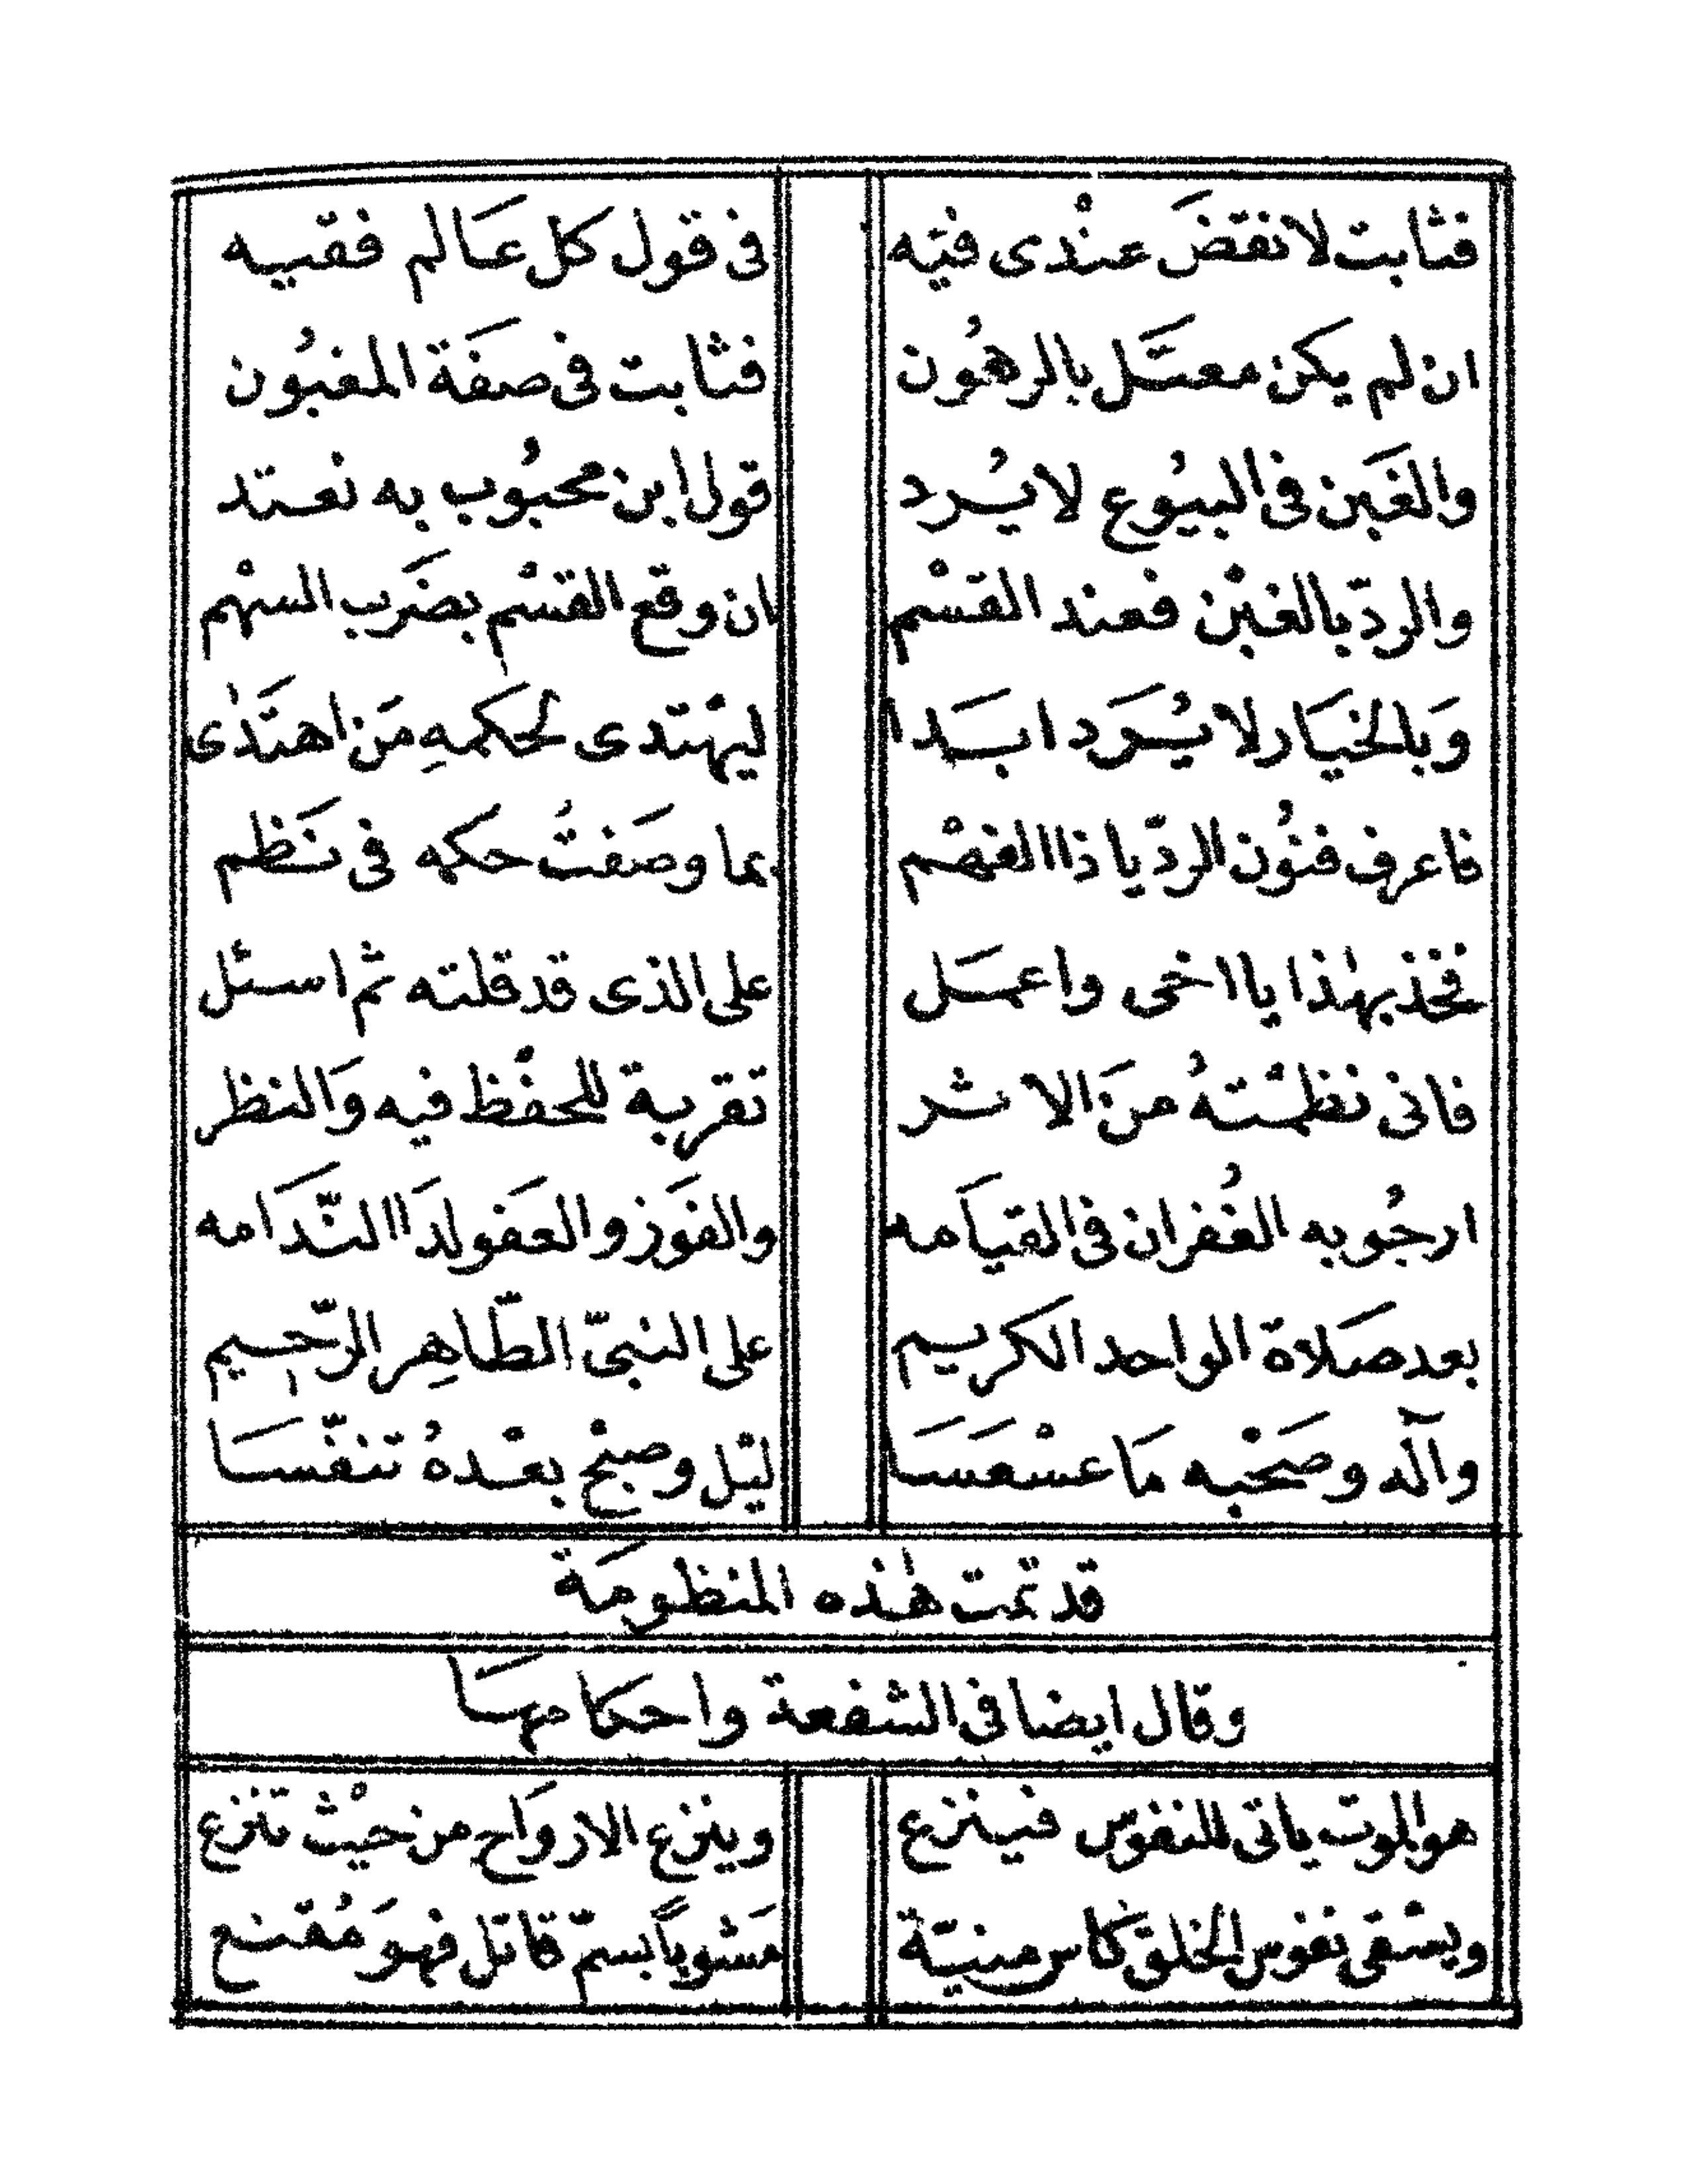 فثابت لا نقضَ عنْدى فيْه في قول كل عَالم فقيه
ان لم يكن معتَل بالرهُون فثابت فى صفَة المغبُون
والغَبن فى البيُوع لا يُرد قول ابن محبُوب به نعتد
والردّ بالغبْن فعند القسْم ان وقع القسْم بضَرب السهْم
وَبالخيَار لا يُرَد ابَدا ليهْتدى لحكمهِ مَن اهتَدٰى
فاعرف فنُون الردّ يا ذا الفهْم بما وصَفتُ حكمه فى نَظم
فخذ بهٰذا يا اخى واعمَل على الذى قد قلته ثم اسئل
فانى نظمْتهُ منَ الاثر تقربة للحفْظ فيه وَالنظر
ارجُو به الغُفران فى القيَامه والفَوز والعَفو لدَا النّدَامه
بعد صَلاة الواحد الكريم على النبىّ الطّاهِر الرّحيم
وآله وصَحْبه مَا عسْعَسَا ليْل وصبْح بعْدهُ تنفّسَا
قد تمت هٰذه المنظومَة
وقال ايضا فى الشفعة واحكامهَا
هو الموت يأتى للنفوس فينزع وينزع الارْوَاح من حيْث تنزع
ويسْقى نفوس الخلق كاس منيّة مَشوباً بسمّ قاتل فهوَ مُقنع